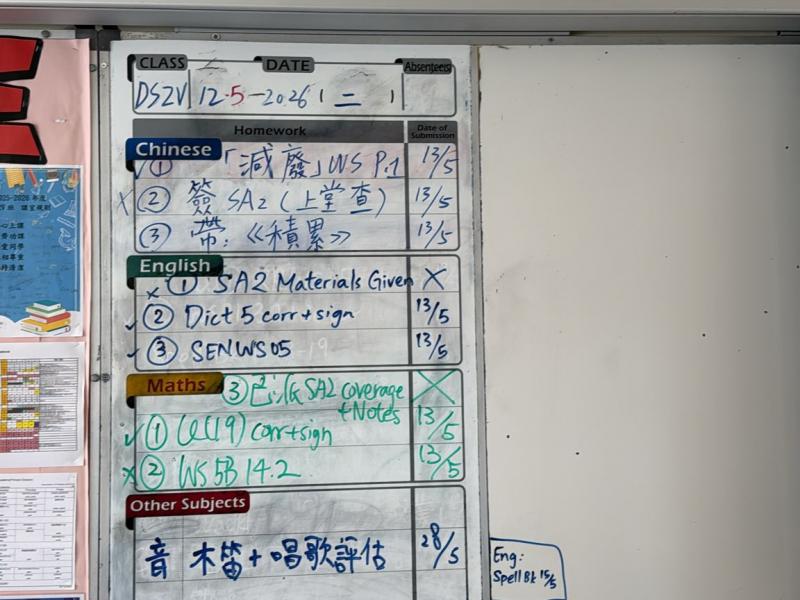 CLASS DATE Absentees
DS2V 12-5-2026 (二)
Homework Date of Submission
Chinese
① 「減廢」WS P.1 13/5
② 簽 SA2 (上堂查) 13/5
③ 帶:《積累》 13/5
English
① SA2 Materials Given ×
② Dict 5 corr + sign 13/5
③ SENWS05 13/5
Maths
③ SA2 coverage + Notes ×
① (19) corr+sign 13/5
② WS 5B 14.2 13/5
Other Subjects
音 木笛 + 唱歌評估 28/5
Eng:
Spell Bk 15/5